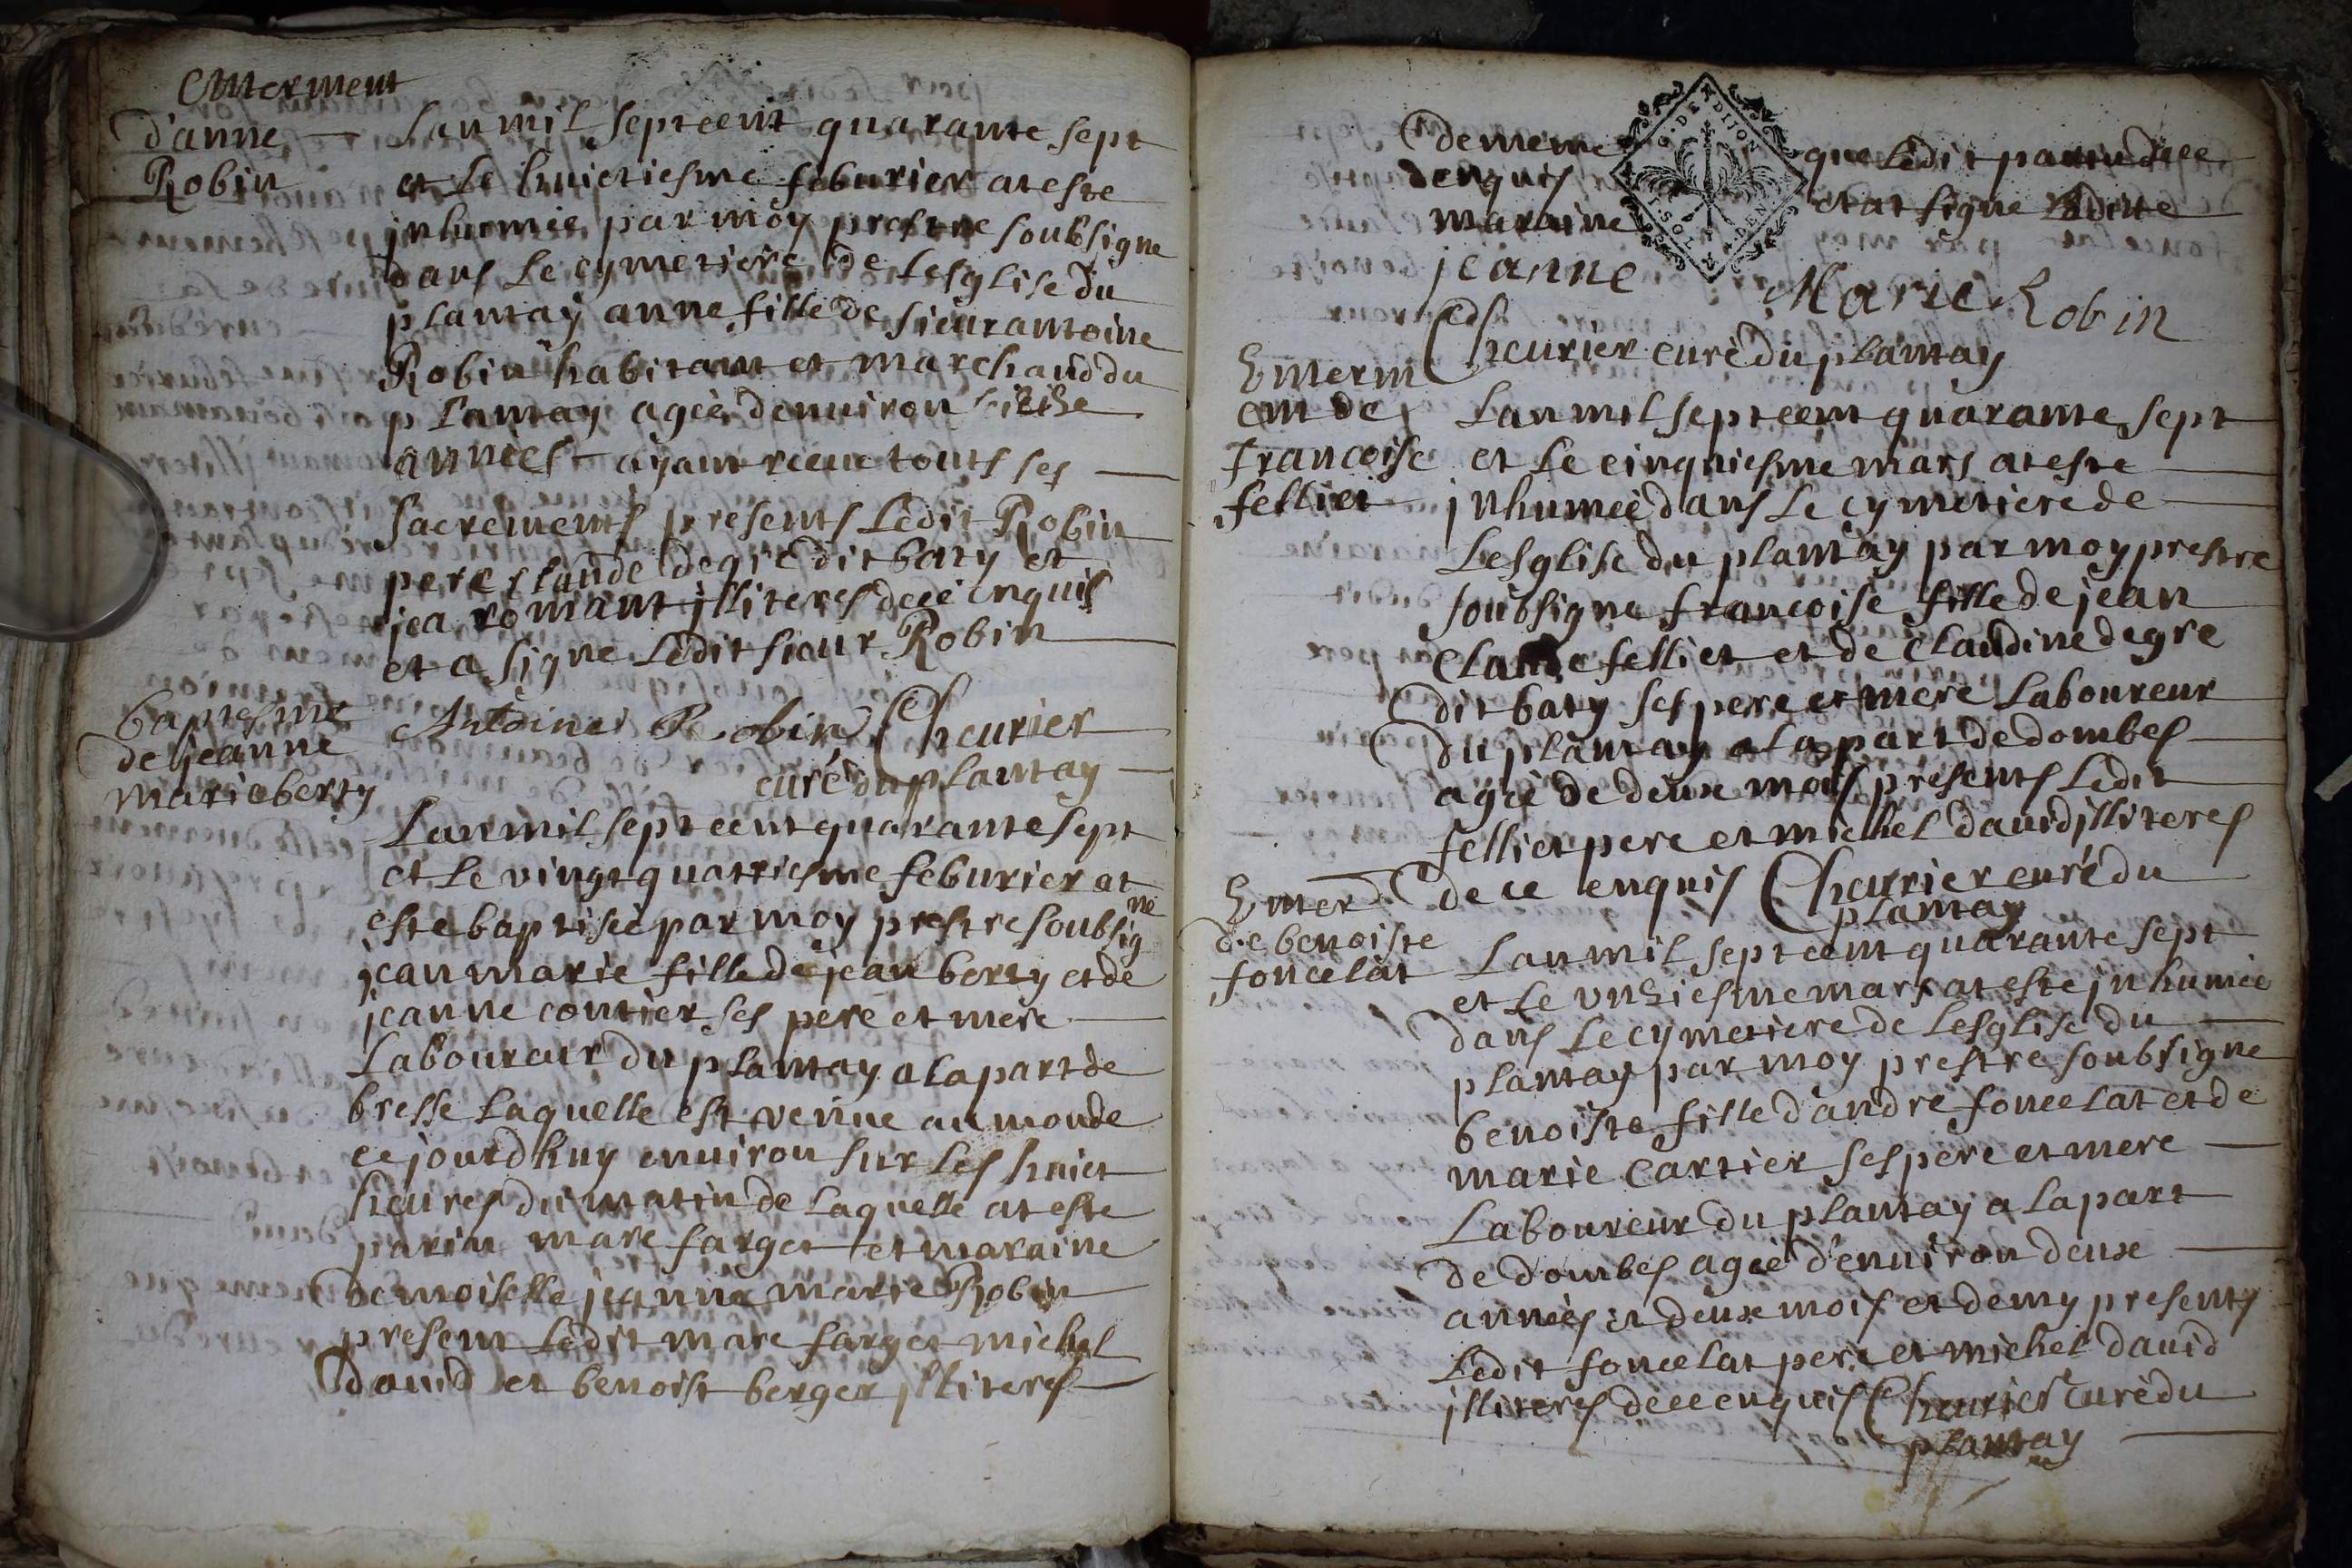 Enterment
d'anne
Robin
Lan mil sept cent quarante sept
et le huictiesme feburier at este
jnhumée par moy prestre soubsigne
dans le cymetiere de lesglise du
plantay anne fille de sieur antoine
Robin habitant et marchand du
plantay agée denuiron seize
années ayant receue touts ses
sacrements presents ledit Robin
pere claude degre dit baty et
jea romant jlliteres dece enquis
et a signe ledit sieur Robin
Antoine Robin Cheurier
curé du plantay
baptesme
de jeanne
marie berty
Lan mil sept cent quarante sept
et le vingt quatriesme feburier at
este baptisée par moy prestre soubsig
né
jean marie fille de jean berty et de
jeanne contier ses pere et mere
laboureur du plantay a la part de
bresse laquelle est venue au monde
ce jourdhuy enuiron sur les huict
heures du matin de laquelle at este
parin marc farget et maraine
demoiselle jeanne marie Robin
present ledit marc farget michel
dauid et benoist berger jlliteres
de meme que ledit parin dece
enquis et at signe laditte
maraine
G. DE DIJON
jeanne Marie Robin
Cheurier curé du plantay
Enterm
ent de
francoise
felliet
Lan mil sept cent quarante sept
et le cinquiesme mars at este
jnhumée dans le cymetiere de
lesglise du plantay par moy prestre
soubsigne francoise fille de jean
claude felliet et de claudine degre
dit baty ses pere et mere laboureur
du plantay a la part de dombes
agée de deux mois presents ledit
felliet pere et michel dauid jlliteres
de ce enquis Cheurier curé du
plantay
Enter
de benoiste
foncelat
Lan mil sept cent quarante sept
et le vnziesme mars at este jnhumée
dans le cymetiere de lesglise du
plantay par moy prestre soubsigne
benoiste fille d'andré foncelat et de
marie cartier ses pere et mere
laboureur du plantay a la part
de dombes agée d'enuiron deux
années et deux mois et demy presents
ledit foncelat pere et michel dauid
jlliteres dece enquis Cheurier curé du
plantay